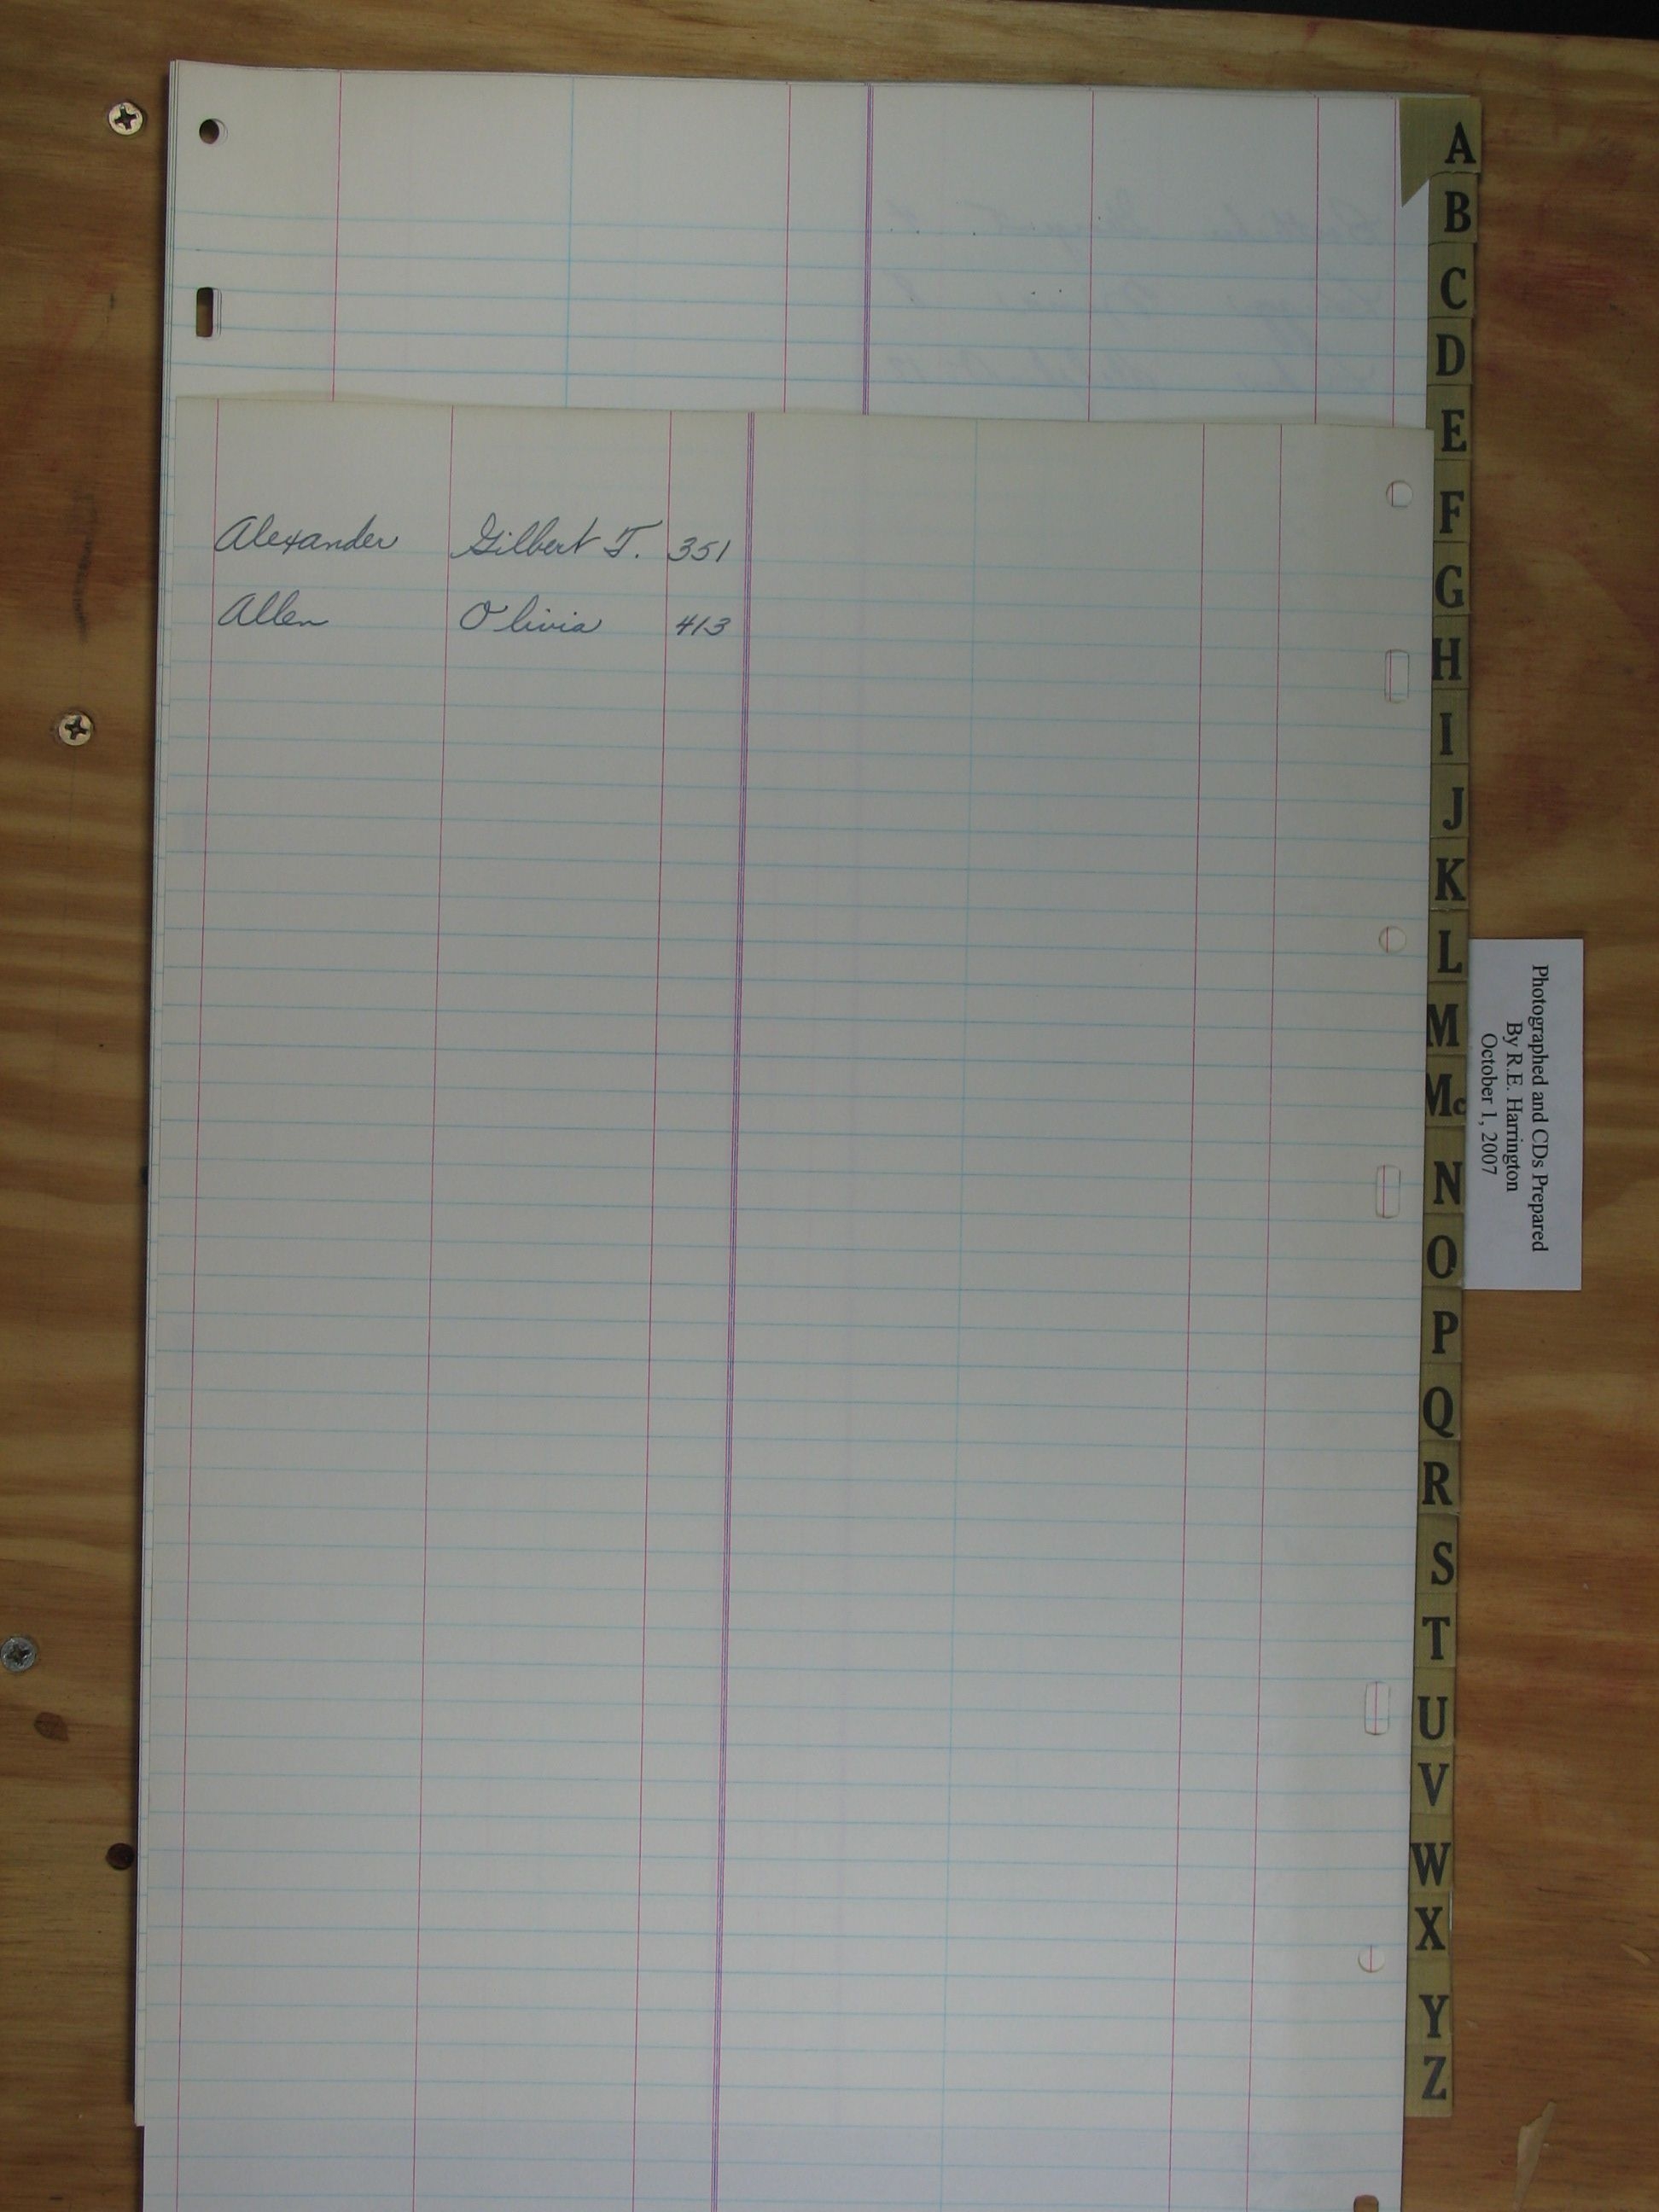 Alexander Gilbert T. 351
Allen Olivia 413
A
B
C
D
E
F
G
H
I
J
K
L
M
Mc
N
O
P
Q
R
S
T
U
V
W
X
Y
Z
Photographed and CDs Prepared
By R.E. Harrington
October 1, 2007